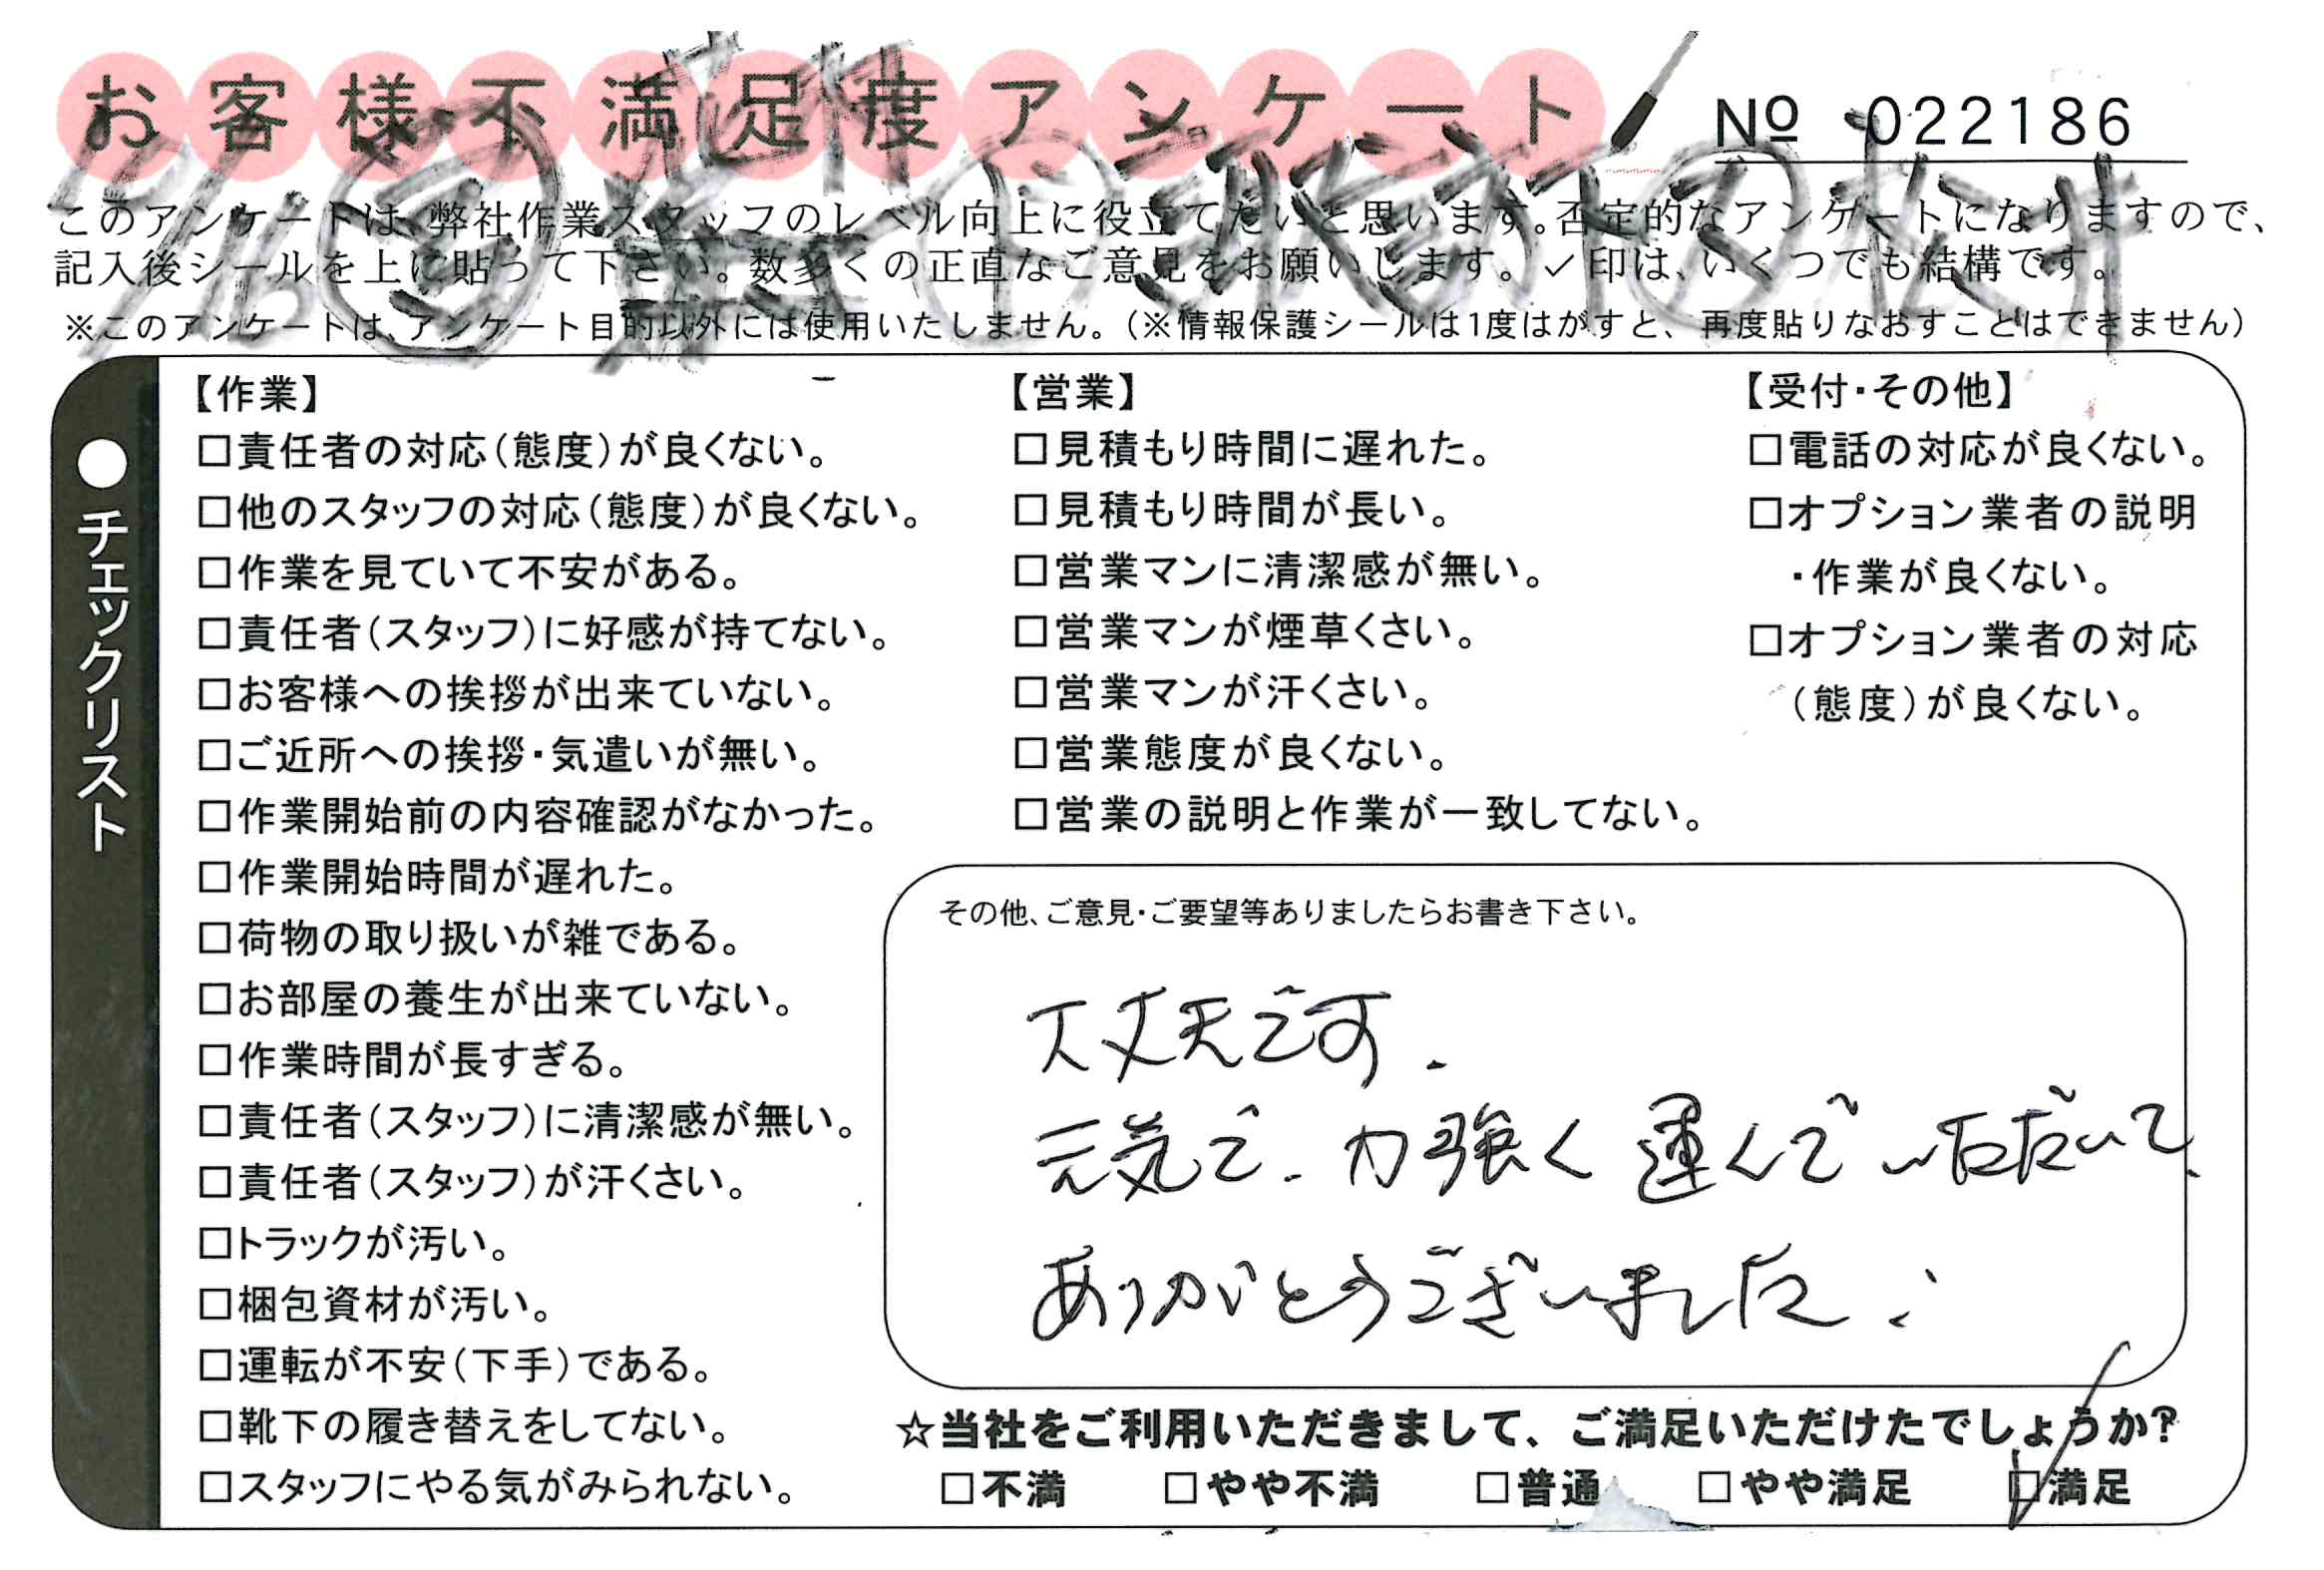 お客様不満足度アンケート
№ 022186
このアンケートは、弊社作業スタッフのレベル向上に役立てたいと思います。否定的なアンケートになりますので、
記入後シールを上に貼って下さい。数多くの正直なご意見をお願いします。✓印は、いくつでも結構です。
※このアンケートは、アンケート目的以外には使用いたしません。（※情報保護シールは1度はがすと、再度貼りなおすことはできません）
●チェックリスト
【作業】
□責任者の対応（態度）が良くない。
□他のスタッフの対応（態度）が良くない。
□作業を見ていて不安がある。
□責任者（スタッフ）に好感が持てない。
□お客様への挨拶が出来ていない。
□ご近所への挨拶・気遣いが無い。
□作業開始前の内容確認がなかった。
□作業開始時間が遅れた。
□荷物の取り扱いが雑である。
□お部屋の養生が出来ていない。
□作業時間が長すぎる。
□責任者（スタッフ）に清潔感が無い。
□責任者（スタッフ）が汗くさい。
□トラックが汚い。
□梱包資材が汚い。
□運転が不安（下手）である。
□靴下の履き替えをしてない。
□スタッフにやる気がみられない。
【営業】
□見積もり時間に遅れた。
□見積もり時間が長い。
□営業マンに清潔感が無い。
□営業マンが煙草くさい。
□営業マンが汗くさい。
□営業態度が良くない。
□営業の説明と作業が一致してない。
【受付・その他】
□電話の対応が良くない。
□オプション業者の説明
・作業が良くない。
□オプション業者の対応
（態度）が良くない。
その他、ご意見・ご要望等ありましたらお書き下さい。
大丈夫です.
元気で、力強く運んでいただいて、
ありがとうございました.
☆当社をご利用いただきまして、ご満足いただけたでしょうか？
□不満 □やや不満 □普通 □やや満足 ☑満足